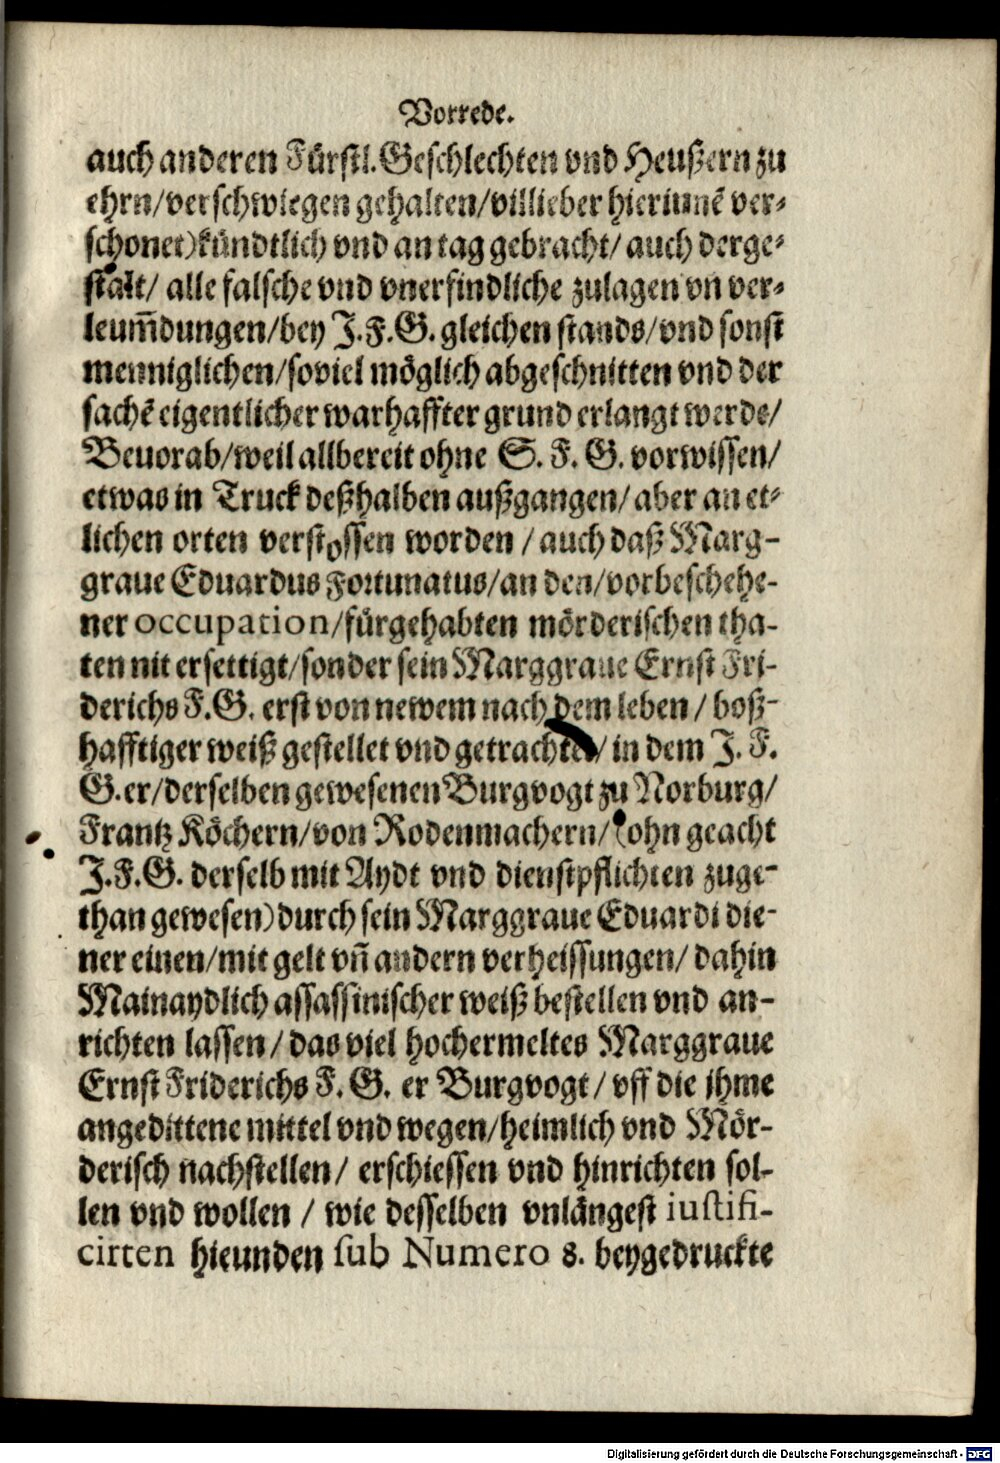 Vorrede.
auch anderen Fürstl. Geschlechten vnd Heußern zu
ehrn/verschwiegen gehalten/villieber hierinnē ver⸗
schonet) kündtlich vnd an tag gebracht/ auch derge⸗
stalt/ alle falsche vnd vnerfindliche zulagen vn ver⸗
leum̄dungen/bey J.F.G. gleichen stands/vnd sonst
menniglichen/soviel möglich abgeschnitten vnd der
sachē eigentlicher warhaffter grund erlangt werde/
Beuorab/weil allbereit ohne S. F. G. vorwissen/
etwas in Truck deßhalben außgangen/ aber an et⸗
lichen orten verstossen worden / auch daß Marg-
graue Eduardus Fortunatus/an den/vorbeschehe-
ner occupation/fürgehabten mörderischen tha-
ten nit ersettigt/sonder sein Marggraue Ernst Fri-
derichs F.G. erst von newem nach dem leben / boß-
hafftiger weiß gestellet vnd getrachtet/ in dem J. F.
G. er/derselben gewesenen Burgvogt zu Norburg/
Frantz Köchern/von Rodenmachern/ (ohn geacht
J.F.G. derselb mit Aydt vnd dienstpflichten zuge-
than gewesen) durch sein Marggraue Eduardi die-
ner einen/mit gelt vn̄ andern verheissungen/ dahin
Mainaydlich assassinischer weiß bestellen vnd an-
richten lassen / das viel hochermeltes Marggraue
Ernst Friderichs F. G. er Burgvogt / vff die ihme
angedittene mittel vnd wegen/heimlich vnd Mör-
derisch nachstellen/ erschiessen vnd hinrichten sol-
len vnd wollen / wie desselben vnlängest iustifi-
cirten hieunden sub Numero 8. beygedruckte
Digitalisierung gefördert durch die Deutsche Forschungsgemeinschaft - DFG